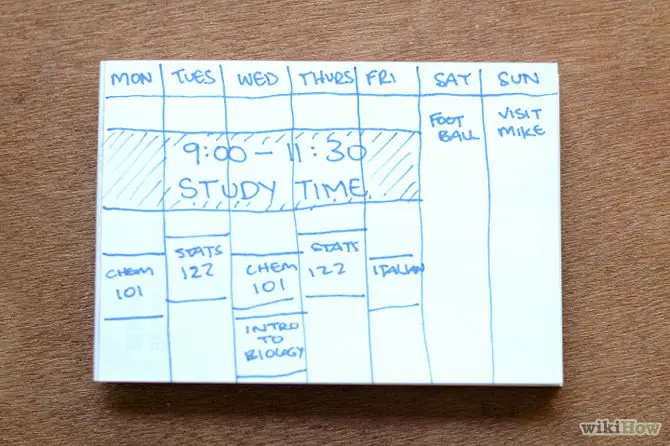 MON TUES WED THURS FRI SAT SUN
FOOT
BALL
VISIT
MIKE
9:00 - 11:30
STUDY TIME
CHEM
101
STATS
122
CHEM
101
INTRO
TO
BIOLOGY
STATS
122
ITALIAN
wikiHow